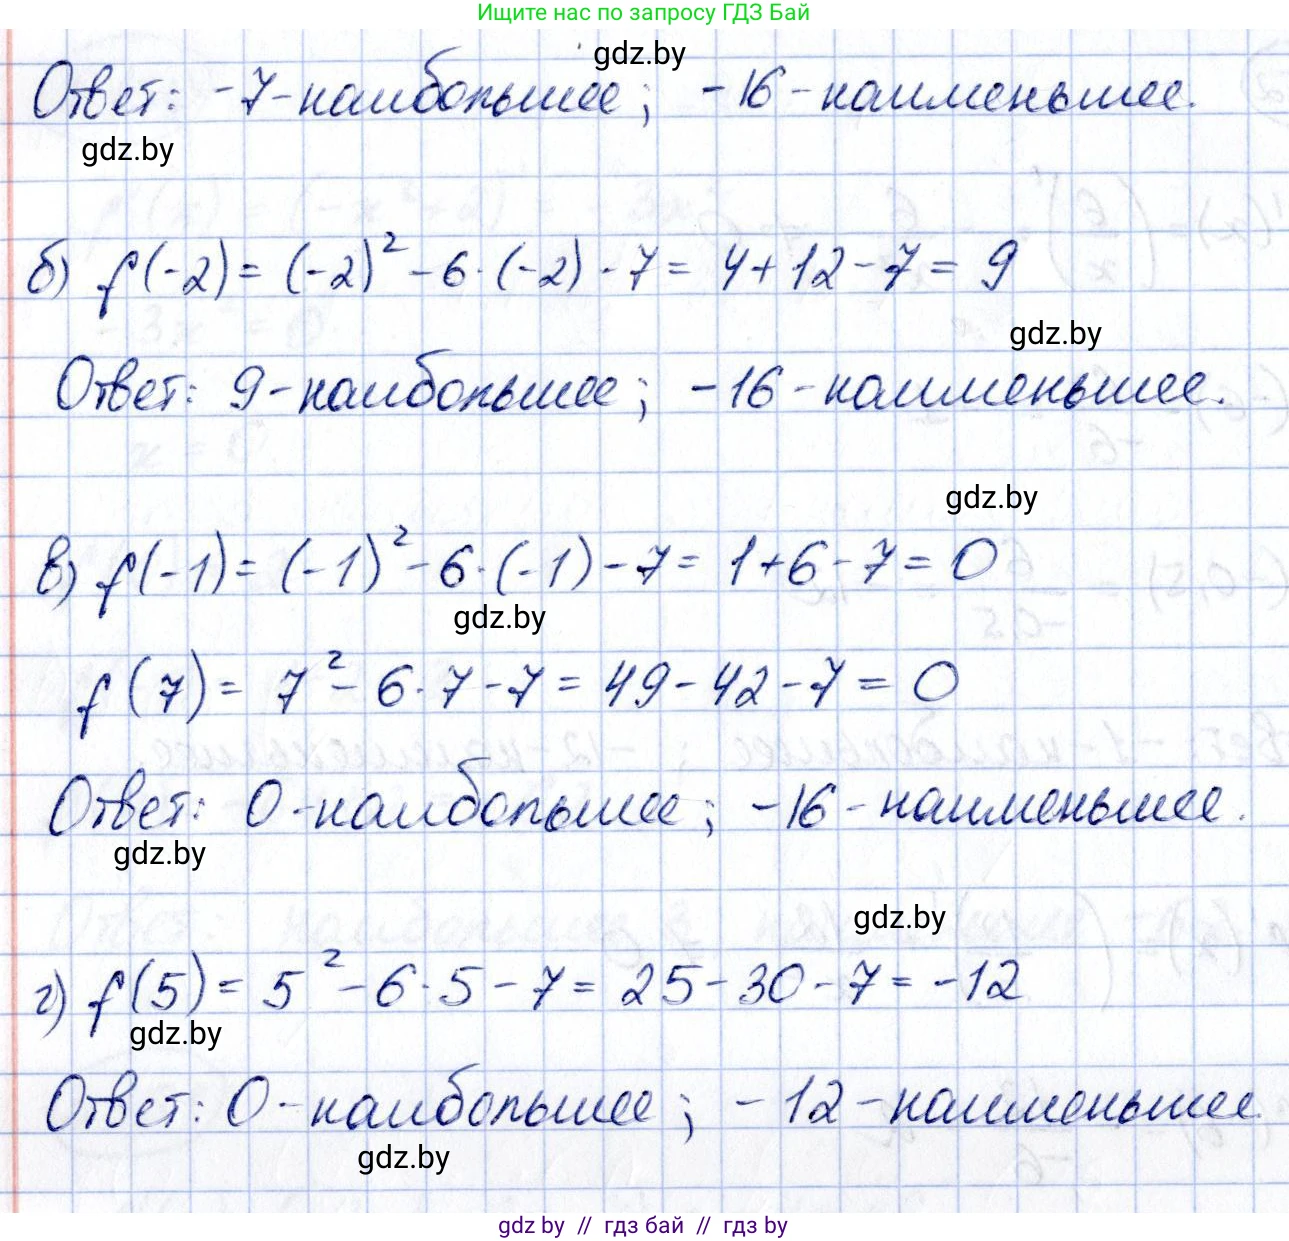 Ищите нас по запросу ГДЗ Бай
gdz.by
Ответ: -7 - наибольшее; -16 - наименьшее.
gdz.by
б) f(-2) = (-2)² - 6 · (-2) - 7 = 4 + 12 - 7 = 9
gdz.by
Ответ: 9 - наибольшее; -16 - наименьшее.
gdz.by
в) f(-1) = (-1)² - 6 · (-1) - 7 = 1 + 6 - 7 = 0
gdz.by
f(7) = 7² - 6 · 7 - 7 = 49 - 42 - 7 = 0
Ответ: 0 - наибольшее; -16 - наименьшее.
gdz.by
gdz.by
г) f(5) = 5² - 6 · 5 - 7 = 25 - 30 - 7 = -12
gdz.by
Ответ: 0 - наибольшее; -12 - наименьшее
gdz.by
gdz by // гдз бай // гдз by